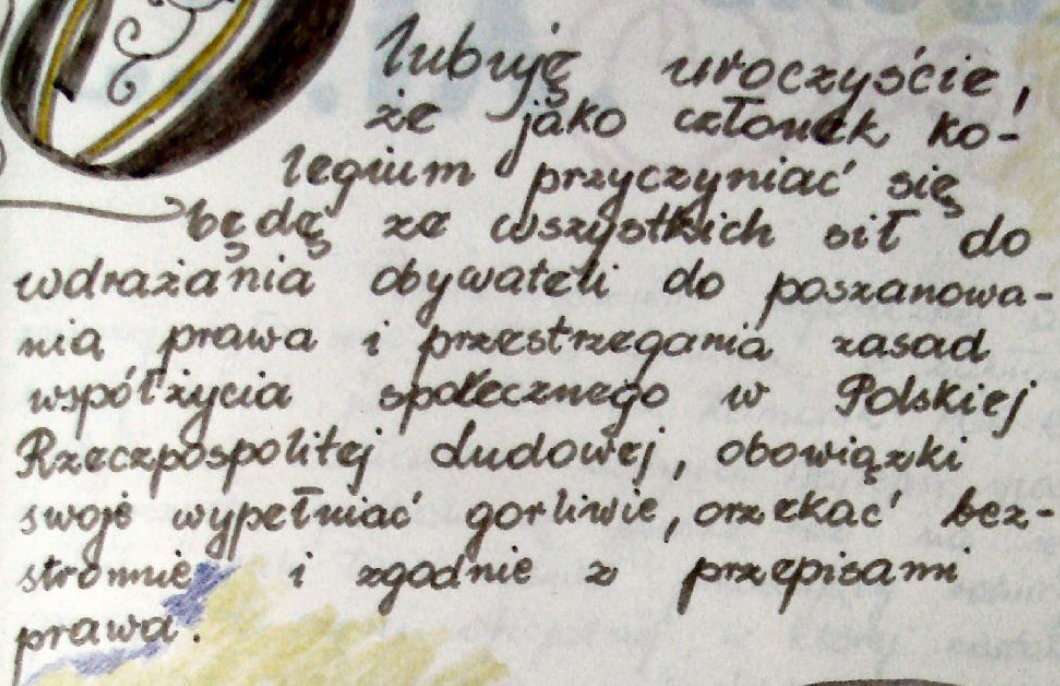 Ślubuję uroczyście,
że jako członek ko-
legium przyczyniać się
będę ze wszystkich sił do
wdrażania obywateli do poszanowa-
nia prawa i przestrzegania zasad
współżycia społecznego w Polskiej
Rzeczpospolitej Ludowej, obowiązki
swoje wypełniać gorliwie, orzekać bez-
stronnie i zgodnie z przepisami
prawa.